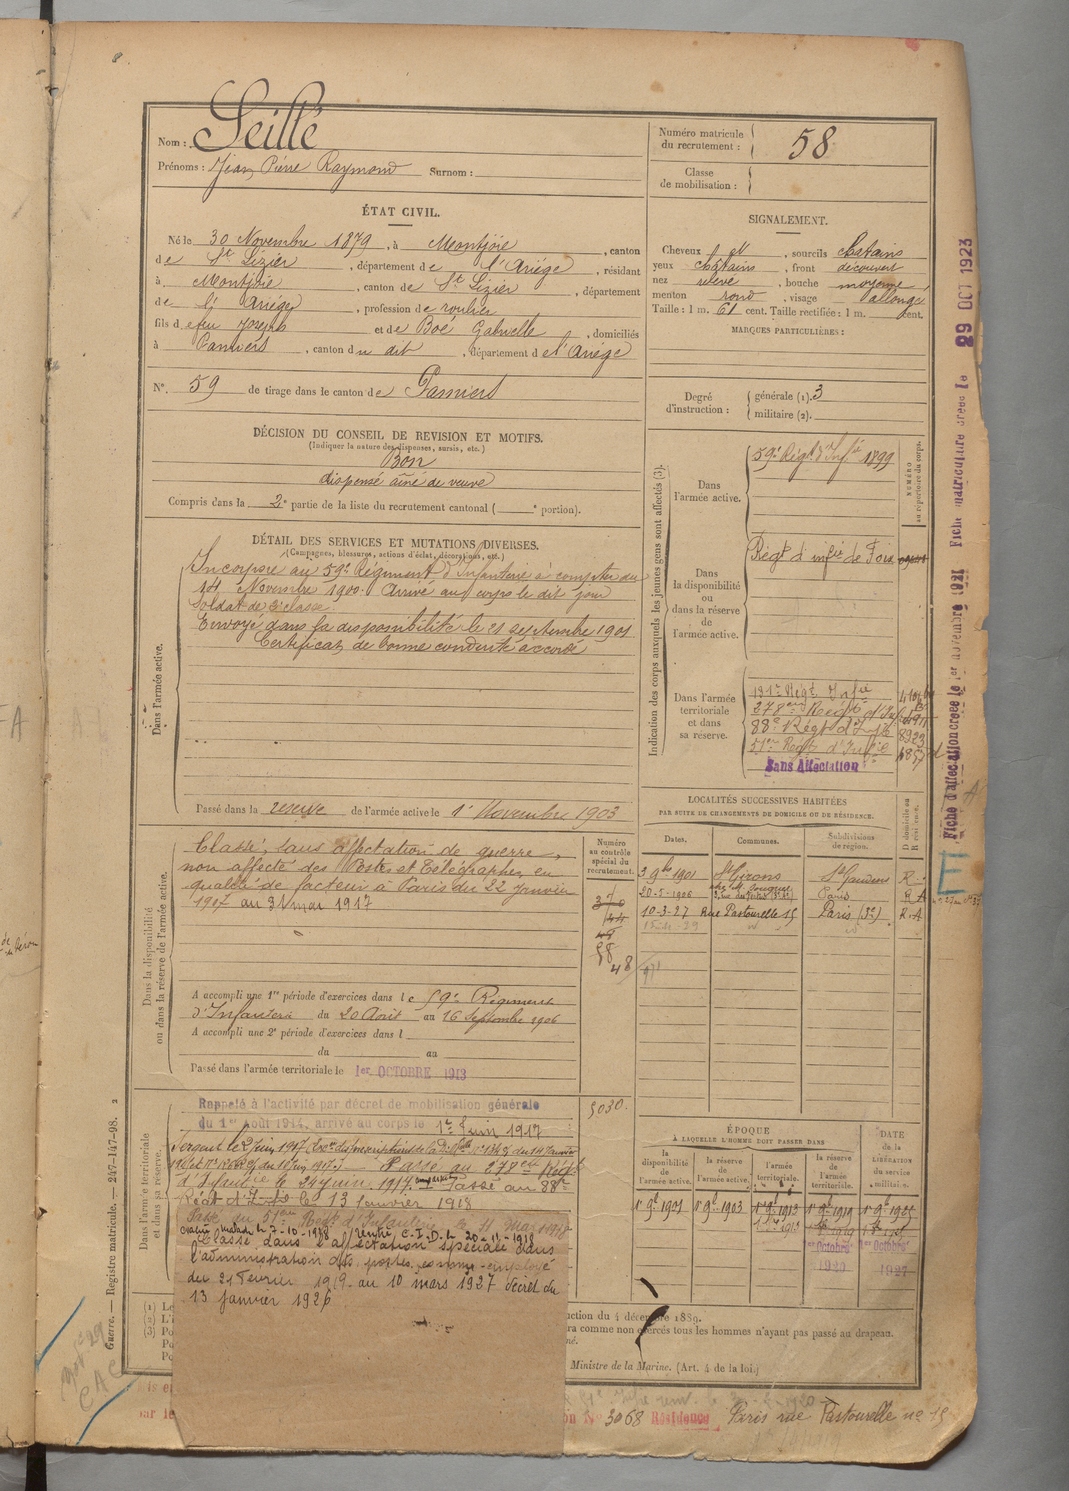 Nom : Seillé
Prénoms : Jean Pierre Raymond Surnom :
Numéro matricule du recrutement : 58
Classe de mobilisation :
ÉTAT CIVIL.
Né le 30 Novembre 1879, à Montjoie, canton
de St Lizier, département de l'Ariège, résidant
à Montjoie, canton de St Lizier, département
de l'Ariège, profession de roulier
fils de feu Joseph et de Boé Gabrielle, domiciliés
à Pamiers, canton du dit, département de l'Ariège
N° 59 de tirage dans le canton de Pamiers
SIGNALEMENT.
Cheveux et, sourcils châtains
yeux châtains, front découvert
nez relevé, bouche moyenne,
menton rond, visage allongé
Taille : 1 m. 61 cent. Taille rectifiée : 1 m. cent.
MARQUES PARTICULIÈRES :
Degré d'instruction : générale (1). 3
militaire (2).
DÉCISION DU CONSEIL DE REVISION ET MOTIFS.
(Indiquer la nature des dispenses, sursis, etc.)
Bon
dispensé aîné de veuve
Compris dans la 2e partie de la liste du recrutement cantonal ( e portion).
DÉTAIL DES SERVICES ET MUTATIONS DIVERSES.
(Campagnes, blessures, actions d'éclat, décorations, etc.)
Dans l'armée active.
Incorporé au 59e Régiment d'Infanterie à compter du
14 Novembre 1900. Arrivé au corps le dit jour
Soldat de 2e classe.
Envoyé dans la disponibilité le 21 septembre 1901
Certificat de bonne conduite accordé
Passé dans la réserve de l'armée active le 1er Novembre 1903
Indication des corps auxquels les jeunes gens sont affectés (3).
NUMÉRO au répertoire du corps.
Dans l'armée active.
59e Régt d'Infie 1899
Dans la disponibilité ou dans la réserve de l'armée active.
Régt d'infie de Foix
Dans l'armée territoriale et dans sa réserve.
131e Régt Infie
278ème Régt d'Infie
88e Régt d'Infie 8923
51ème Régt d'Infie
Sans Affectation
Dans la disponibilité ou dans la réserve de l'armée active.
Classé, sans affectation de guerre,
non affecté des Postes et Télégraphes, en
qualité de facteur à Paris du 22 janvier
1907 au 31 mai 1917
A accompli une 1re période d'exercices dans le 59e Régiment
d'Infanterie du 20 Août au 16 Septembre 1906
A accompli une 2e période d'exercices dans l
du au
Passé dans l'armée territoriale le 1er OCTOBRE 1913
Numéro au contrôle spécial du recrutement.
48
LOCALITÉS SUCCESSIVES HABITÉES
PAR SUITE DE CHANGEMENTS DE DOMICILE OU DE RÉSIDENCE.
Dates. Communes. Subdivisions de région. D domicile ou R résidence.
3 9bre 1901 St Girons St Gaudens R.
20-5-1906 Paris R
10-3-27 Rue Pastourelle 15 Paris (3e) R.A
15-4-29
Dans l'armée territoriale et dans sa réserve.
Rappelé à l'activité par décret de mobilisation générale
du 1er Août 1914, arrivé au corps le 1er Juin 1917
5030
Sergent le 2 juin 1917
Passé au 278ème Régt
d'Infanterie le 24 juin 1917. Passé au 88e
Régt d'Infie le 13 Janvier 1918
Passé au 51ème Régt d'Infanterie le 11 mai 1918
évacué malade le 7-10-1918 rentré C.I.D. le 20-11-1918
Classé dans l'affectation spéciale dans
l'administration des postes comme employé
du 21 Février 1919 au 10 mars 1927 décret du
13 janvier 1926
ÉPOQUE
À LAQUELLE L'HOMME DOIT PASSER DANS
la disponibilité de l'armée active. la réserve de l'armée active. l'armée territoriale. la réserve de l'armée territoriale. DATE de la LIBÉRATION du service militaire.
1er 9bre 1901 1er 9bre 1903 1er 9bre 1913 1er 9bre 1919 1er 9bre 1925
1er Octobre 1er Octobre
1920 1927
ction du 4 décembre 1889.
ra comme non exercés tous les hommes n'ayant pas passé au drapeau.
Ministre de la Marine. (Art. 4 de la loi.)
N° 3068 Résidence Paris rue Pastourelle n° 15
Guerre. — Registre matricule. — 247-147-98. 2
Fiche d'affectation créée le 1er novembre 1921 Fiche matriculaire créée le 29 OCT 1923
E
CAC